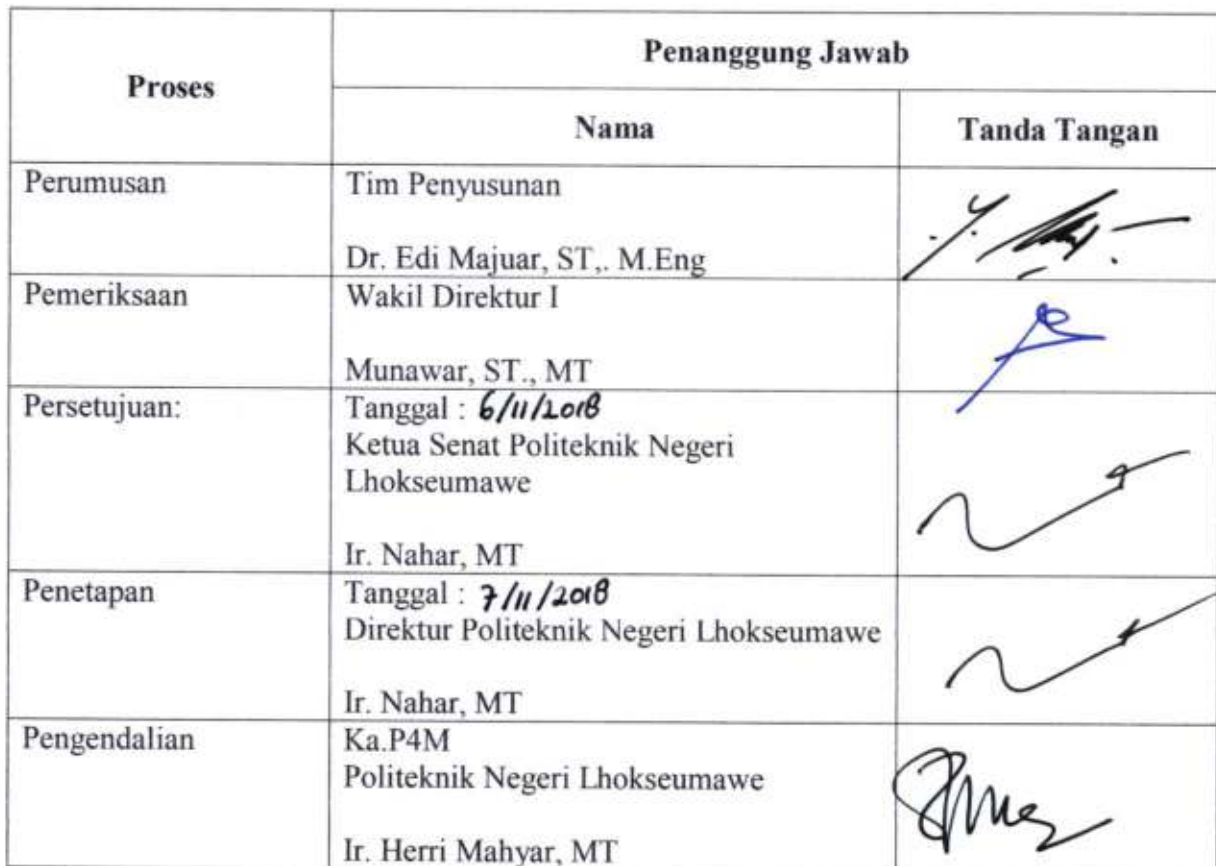 Proses
Penanggung Jawab
Nama
Tanda Tangan
Perumusan
Tim Penyusunan
Dr. Edi Majuar, ST,. M.Eng
Pemeriksaan
Wakil Direktur I
Munawar, ST., MT
Persetujuan:
Tanggal : 6/11/2018
Ketua Senat Politeknik Negeri
Lhokseumawe
Ir. Nahar, MT
Penetapan
Tanggal : 7/11/2018
Direktur Politeknik Negeri Lhokseumawe
Ir. Nahar, MT
Pengendalian
Ka.P4M
Politeknik Negeri Lhokseumawe
Ir. Herri Mahyar, MT